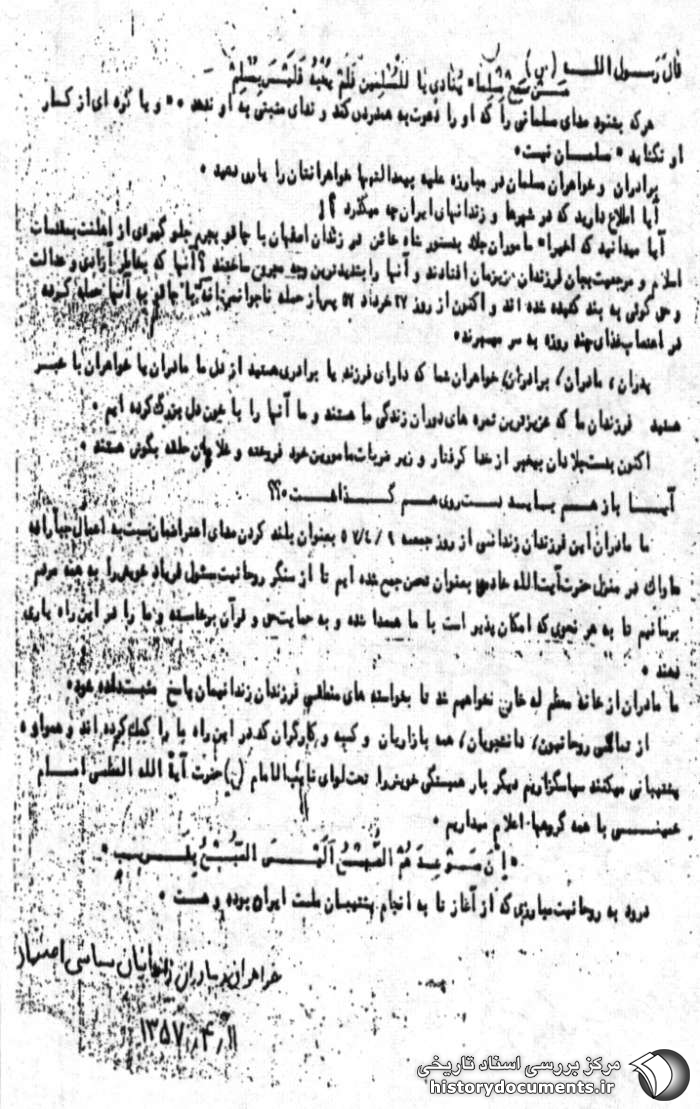 قال رسول الله (ص)
من سمع مسلما" ینادی یا للمسلمین فلم یجبه فلیس بمسلم
هرکه بشنود صدای مسلمانی را که او را دعوت به همدردی کند و ندای مثبتی به او ندهد و یا گره ای از کار
او نگشاید مسلمان نیست.
برادران و خواهران مسلمان در مبارزه علیه بیعدالتیها خواهرانتان را یاری دهید.
آیا اطلاع دارید که در شهرها و زندانهای ایران چه میگذرد ؟!
آیا میدانید که اخیرا" ماموران جلاد بدستور شاه خائن در زندان اصفهان با چاقو بجرم جلوگیری از اهانت بمقدسات
اسلام و مرجعیت بجان فرزندان عزیزمان افتادند و آنها را بشدیدترین وجه مجروح ساختند ؟ آنها که بخاطر آزادی و عدالت
و حق گوئی به بند کشیده شده اند و اکنون از روز ۲۷ خرداد ۵۷ پس از حمله ناجوانمردانه با چاقو به آنها حمله کرده
در اعتصاب غذای چند روزه به سر میبرند.
پدران، مادران/ برادران/ خواهران شما که دارای فرزند یا برادری هستید از دل ما مادران یا خواهران با خبر
هستید فرزندان ما که عزیزترین ثمره های دوران زندگی ما هستند و ما آنها را با خون دل بزرگ کرده ایم.
اکنون بدست جلادان بیخبر از خدا گرفتار و زیر ضربات مامورین خود فروخته و غلامان حلقه بگوش هستند.
آیا باز هم باید دست روی هم گذاشت ؟؟
ما مادران این فرزندان زندانی از روز جمعه ۹ / ۴ / ۵۷ بعنوان بلند کردن صدای اعتراضمان نسبت به اعمال جبارانه
ساواک در منزل حضرت آیت الله خادمی بعنوان تحصن جمع شده ایم تا از سنگر روحانیت مسئول فریاد خویش را به همه مردم
برسانیم تا به هر نحوی که امکان پذیر است با ما همصدا شده و به حمایت حق و قرآن برخاسته و ما را در این راه یاری
دهند.
ما مادران از خانه معظم له خارج نخواهیم شد تا بخواسته های منطقی فرزندان زندانیمان پاسخ مثبت داده شود.
از تمامی روحانیون/ دانشجویان/ همه بازاریان و کسبه و کارگران که در این راه ما را کمک کرده اند و همواره
پشتیبانی میکنند سپاسگزاریم دیگر بار همبستگی خویش را تحت لوای نایب الامام (ع) حضرت آیة الله العظمی امام
خمینی با همه گروهها اعلام میداریم.
" ان موعدهم الصبح الیس الصبح بقریب "
درود به روحانیت مبارزی که از آغاز تا به انجام پشتیبان ملت ایران بوده و هست.
خواهران و مادران زندانیان سیاسی اصفهان
۱۱ / ۴ / ۱۳۵۷
مرکز بررسی اسناد تاریخی
historydocuments.ir